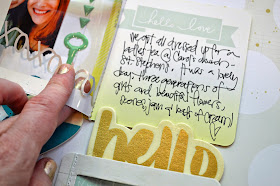 hello love
We got all dressed up for a
tea @ church -
St. Stephen's. It was a lovely
day, three generations of
girls and beautiful flowers,
scones, jam & lots of cream!
hello